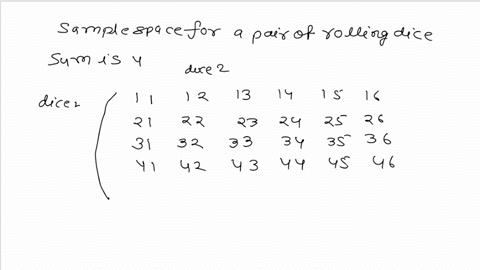 Sample space for a pair of rolling dice
Sum is 4
dice 2
dice 1 11 12 13 14 15 16
21 22 23 24 25 26
31 32 33 34 35 36
41 42 43 44 45 46